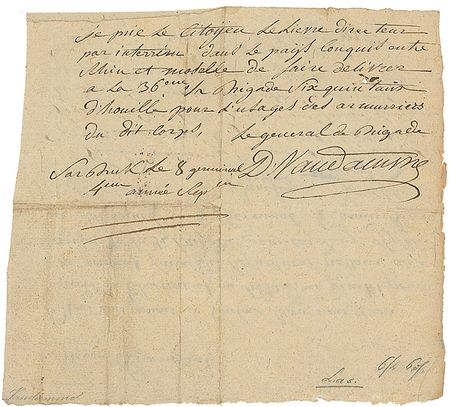 je prie Le Citoyen Le Lievre directeur
par interrim dans Le païs Conquis entre
Rhin et Moselle de faire delivrer
a La 36eme 1/2 Brigade Six quintaux
d'houille pour L'usages des armuriers
du dit Corps,
Le general de Brigade
Sarbruk Le 8 germinal
4em année Rep
D. Vandamme
Vandamme
L.a.s.